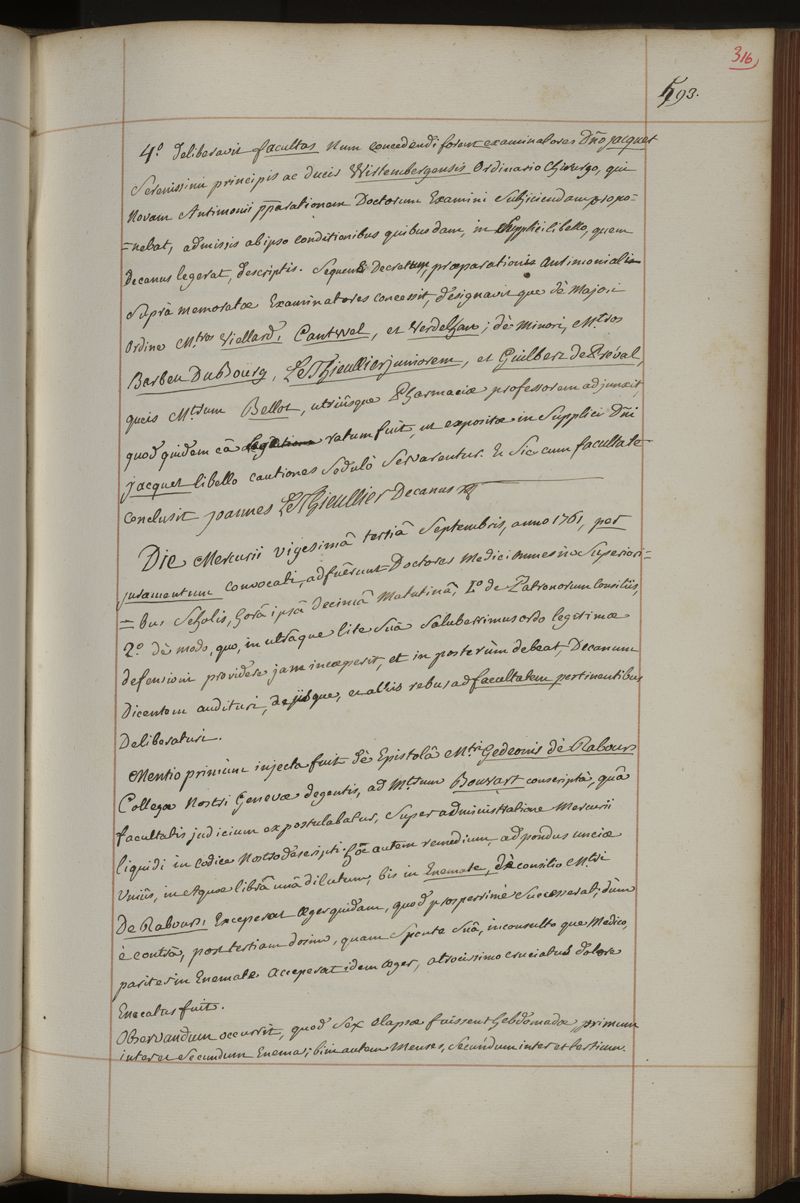 316
593.
4.º deliberavit facultas Num concedendi forent examinatores Dño jacquet
Serenissimi principis ac ducis Wirtembergensis Ordinario Chirurgo, qui
Novam Antimonii pparationem Doctorum Examini Subjiciendam propo=
=nebat, admissis ab ipso conditionibus quibusdam, in Supplici libello, quem
Decanus legerat, descriptis. Sequens Decretum, præparationis antimonialis
Suprà memoratæ Examinatores concessit, designavitque dè Majori
Ordine M.tros Viellard, Cantwel, et Verdelhan; dè Minori, M.tros
Barbeu DuBourg, LeThieullier juniorem, et Guilbert de Préval,
queis M.trum Bellot, utriùsque Pharmaciæ professorem adjunxit,
quod quidem eâ ratum fuit, ut expositæ in Supplici Dñi
jacquet libello cautiones Sedulò Servarentur. Et Sic cum facultate
Conclusit joannes LeThieullier Decanus
Die Mercurii vigesimâ tertiâ Septembris, anno 1761, per
juramentum convocati, adfuêrunt Doctores Medici omnes in Superiori=
=bus Scholis, horâ ipsâ decimâ Matutinâ, 1.º de Patronorum Consiliis,
2.º dè modo, quo, in utrâque lite Suâ Saluberrimus ordo legitimæ
defensioni providere jam incæperit, et in posterùm debeat, Decanum
Dicentem audituri, de iisque, et aliis rebus ad facultatem pertinentibus
Deliberaturi.
Mentio primùm injecta fuit dè Epistolâ M.tri Gedeonis dè Rabours
Collegæ Nostri Genevæ degentis, ad M.trum Bouvart conscriptâ, quâ
facultatis judicium expostulabatur, Super administratione Mercurii
liquidi in Codice Nostro descripti. hôc autem remedium, ad pondus unciæ
Uniùs, in Aquæ librâ unâ dilutum, bis in Enemate, dè consilio M.tri
De Rabours, Exceperat æger quidam, quod prosperrimè Successerat; dùm
è contrà, post tertiam dosim, quam Sponte Suâ, inconsulto que Medico,
pariter in Enemate Acceperat idem æger, atrocissimo cruciatus dolore
Enecatus fuit.
Observandum occurrit, quod Sex elapsæ fuissent hebdomadæ primum
inter et Secundum Enema; bini autem Menses, Secundum inter et tertium.